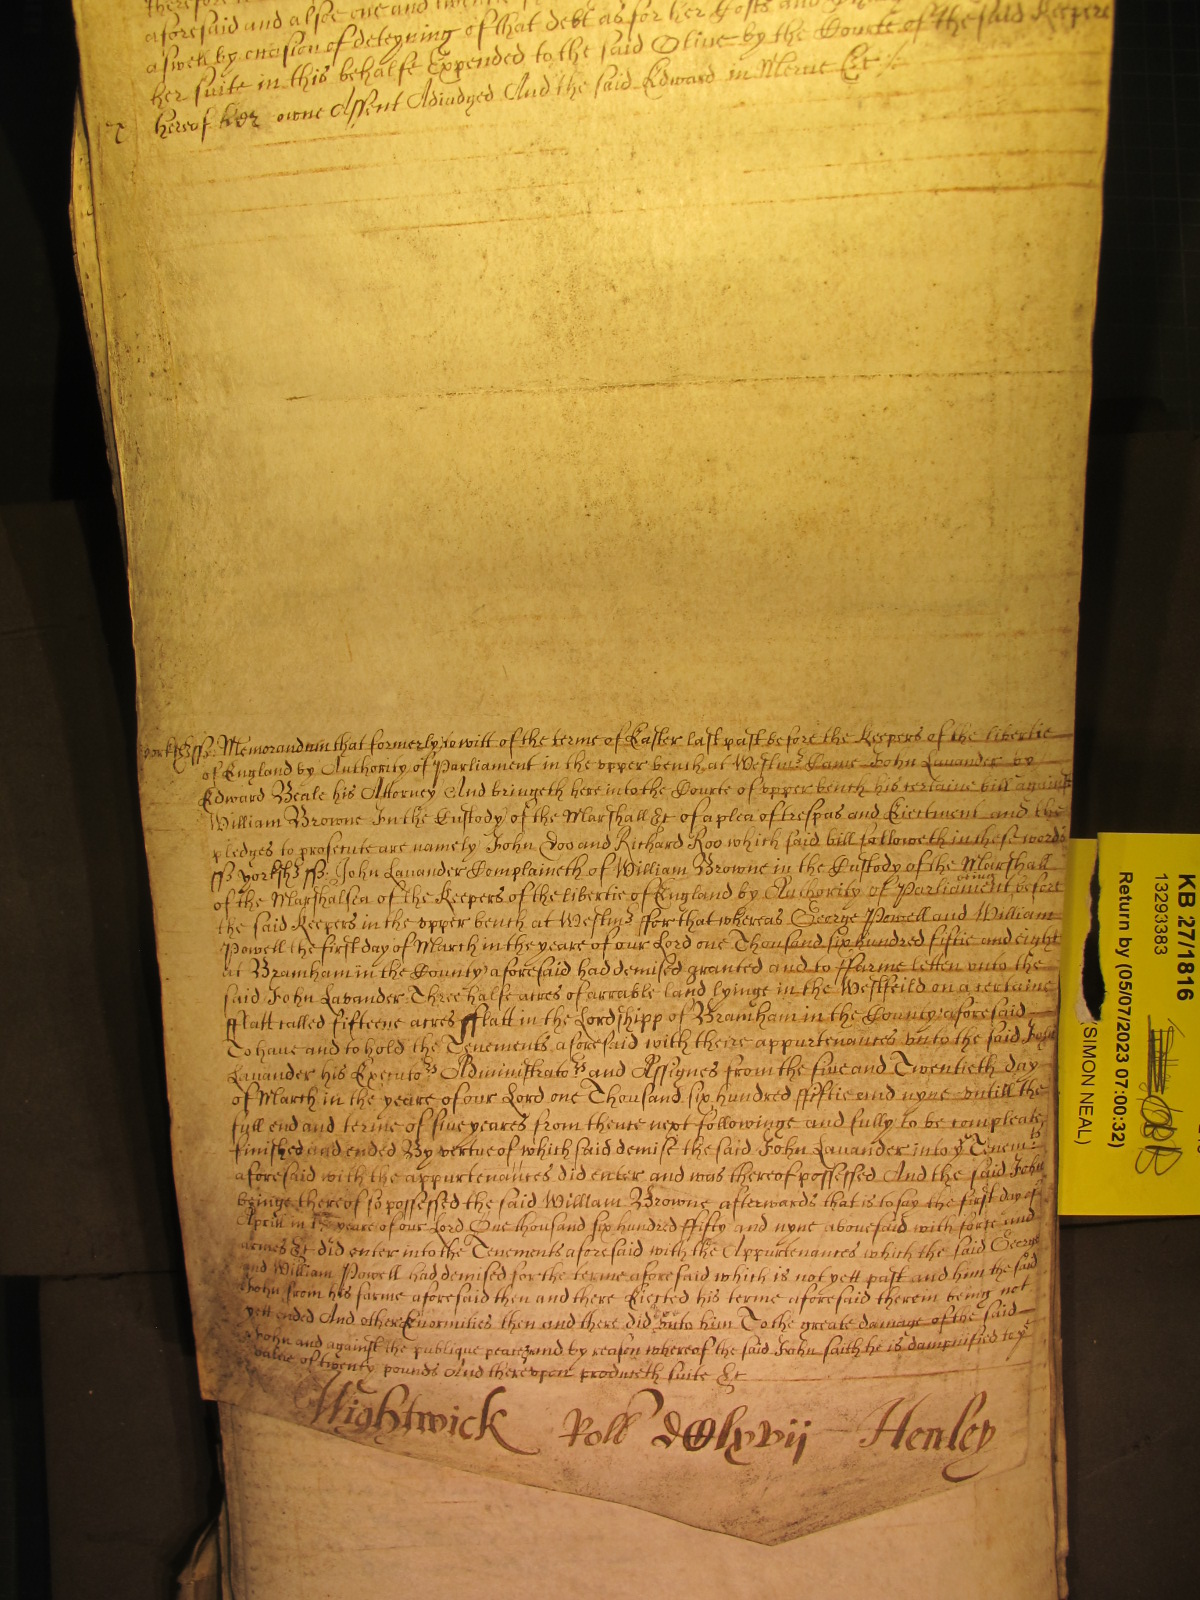 aforesaid and alsoe one and twenty
aswell by occasion of deteyning of that debt as for her Costs and
her suite in this behalfe Expended to the said Olive by the Courte of the said Keepers
hereof her owne Assent Adiudged And the said Edward in Mercie &c
yorksh ss: Memorandum that formerly to witt of the terme of Easter last past before the Keepers of the libertie
of England by Authority of Parliament in the vpper bench at Westm Came John Lauander by
Edward Beale his Attorney And bringeth here into the Courte of vpper bench his certaine bill against
William Browne In the Custody of the Marshall &c of a plea of trespas and Eiectment and the
pledges to prosecute are namely John Doo and Richard Roo which said bill followeth in these words
ss yorksh ss: John Lauander Complaineth of William Browne in the Custody of the Marshall
of the Marshalsea of the Keepers of the libertie of England by Authority of Parliament being before
the said Keepers in the vpper bench at Westm ffor that whereas George Powell and William
Powell the first day of March in the yeare of our Lord one Thousand six hundred fiftie and eight
at Bramham in the County aforesaid had demised granted and to ffarme letten vnto the
said John Lavander Three halfe acres of arrable land lyinge in the Westfeild on a certaine
fflatt called fifteene acres fflatt in the Lordshipp of Bramham in the County aforesaid
To haue and to hold the Tenements aforesaid with theire appurtenances vnto the said John
Lauander his Executors Administrators and Assignes from the fiue and Twentieth day
of March in the yeare of our Lord one Thousand six hundred ffiftie and nyne vntill the
full end and terme of fiue yeares from thence next followinge and fully to be compleate
finished and ended By vertue of which said demise the said John Lauander into ye Tenemts
aforesaid with the appurtenances did enter and was thereof possessed And the said John
beinge thereof so possessed the said William Browne afterwards that is to say the first day of
Aprill in ye yeare of our Lord One thousand six hundred ffifty and nyne abouesaid with force and
armes &c did enter into the Tenements aforesaid with the Appurtenances which the said George
and William Powell had demised for the terme aforesaid which is not yett past and him the said
John from his farme aforesaid then and there Eiected his terme aforesaid therein being not
yett ended And other Enormities then and there did vnto him To the greate damage of the said
John and against the publique peace and by reason whereof the said John saith he is dampnified to ye
value of twenty pounds And therevpon produceth suite &c
Wightwick Roll dlxvij Henley
KB 27/1816
13293383
Return by (05/07/2023 07:00:32)
(SIMON NEAL)